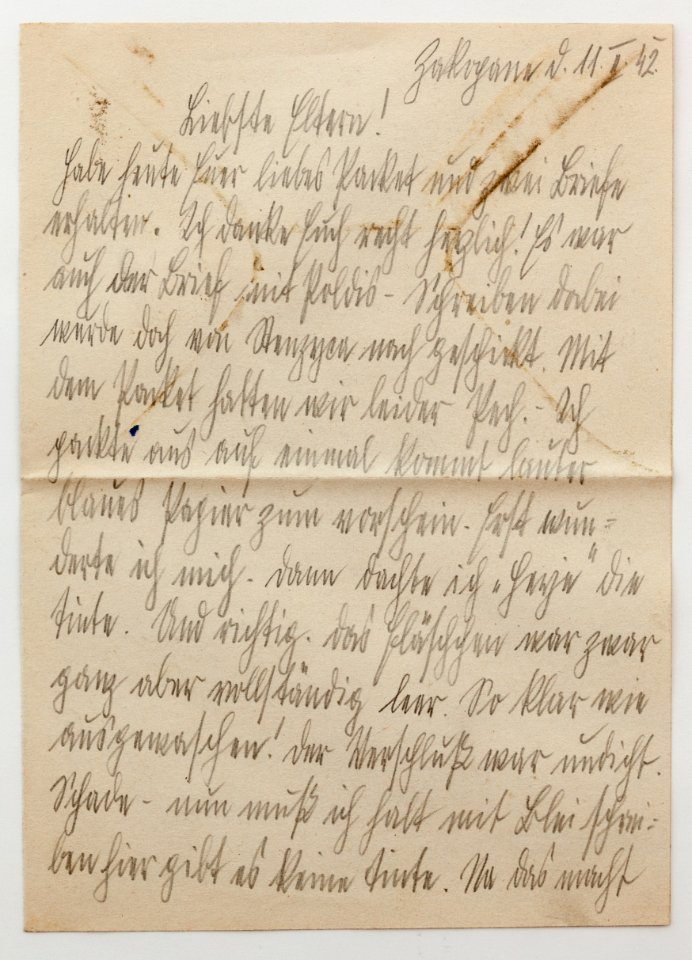 Zakopane d. 11. I. 42.
Liebste Eltern!
Habe heute Euer liebes Packet und zwei Briefe
erhalten. Ich danke Euch recht herzlich! Es war
auch der Brief mit Poldis - Schreiben dabei
wurde doch von nach geschickt. Mit
dem Packet hatten wir leider Pech. - Ich
packte aus auf einmal kommt lauter
blaues Papier zum vorschein. Erst wun=
derte ich mich - dann dachte ich „ " die
Tinte. Und richtig. das Fläschchen war zwar
ganz aber vollständig leer. So klar wie
ausgewaschen! der Verschluß war undicht.
Schade - nun muß ich halt mit Blei schrei=
ben hier gibt es keine Tinte. Na das macht